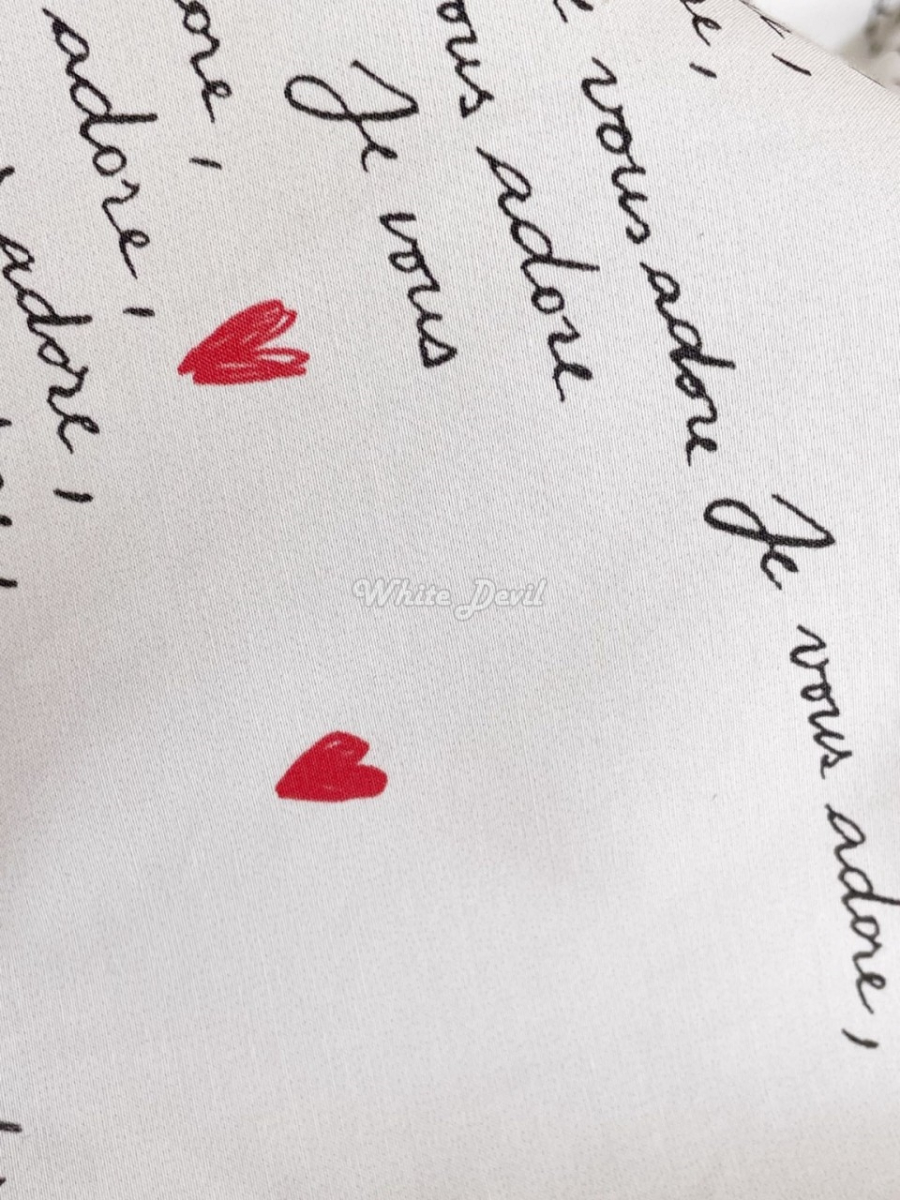 vous adore Je vous adore,
adore
Je vous
adore,
adore,
White Devil